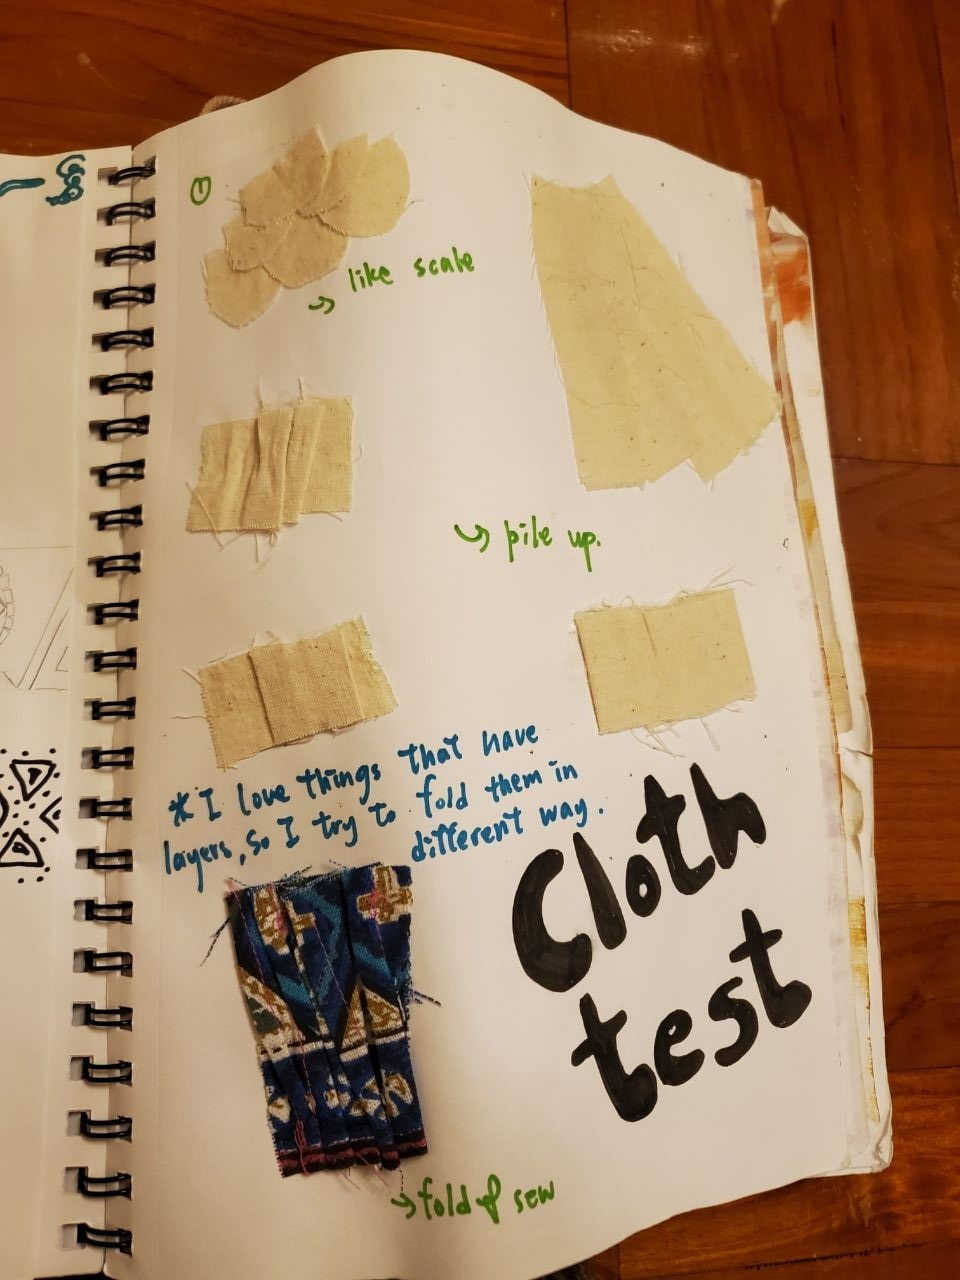 ①
like scale
pile up.
* I love things that have
layers, so I try to fold them in
different way.
Cloth
test
fold & sew